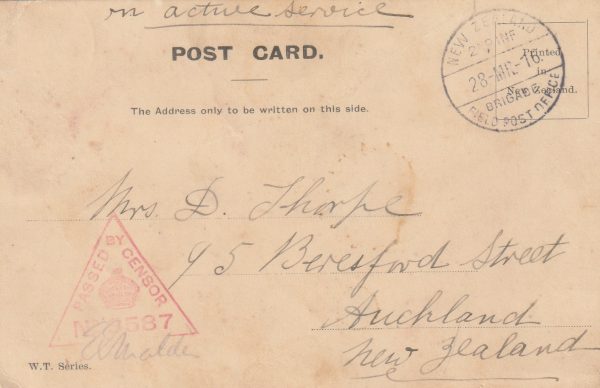 on active service
POST CARD.
The Address only to be written on this side.
NEW ZEALAND
2ND INF
28-MR-16
BRIGADE
FIELD POST OFFICE
Printed
in
New Zealand.
Mrs. D. Thorpe
95 Beresford Street
Auckland
New Zealand
PASSED BY CENSOR
W.T. Series.